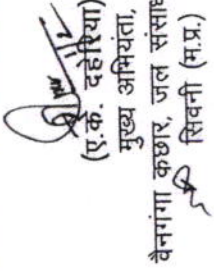 (ए.के. दहेरिया)
मुख्य अभियंता,
वैनगंगा कछार, जल संसाध
सिवनी (म.प्र.)